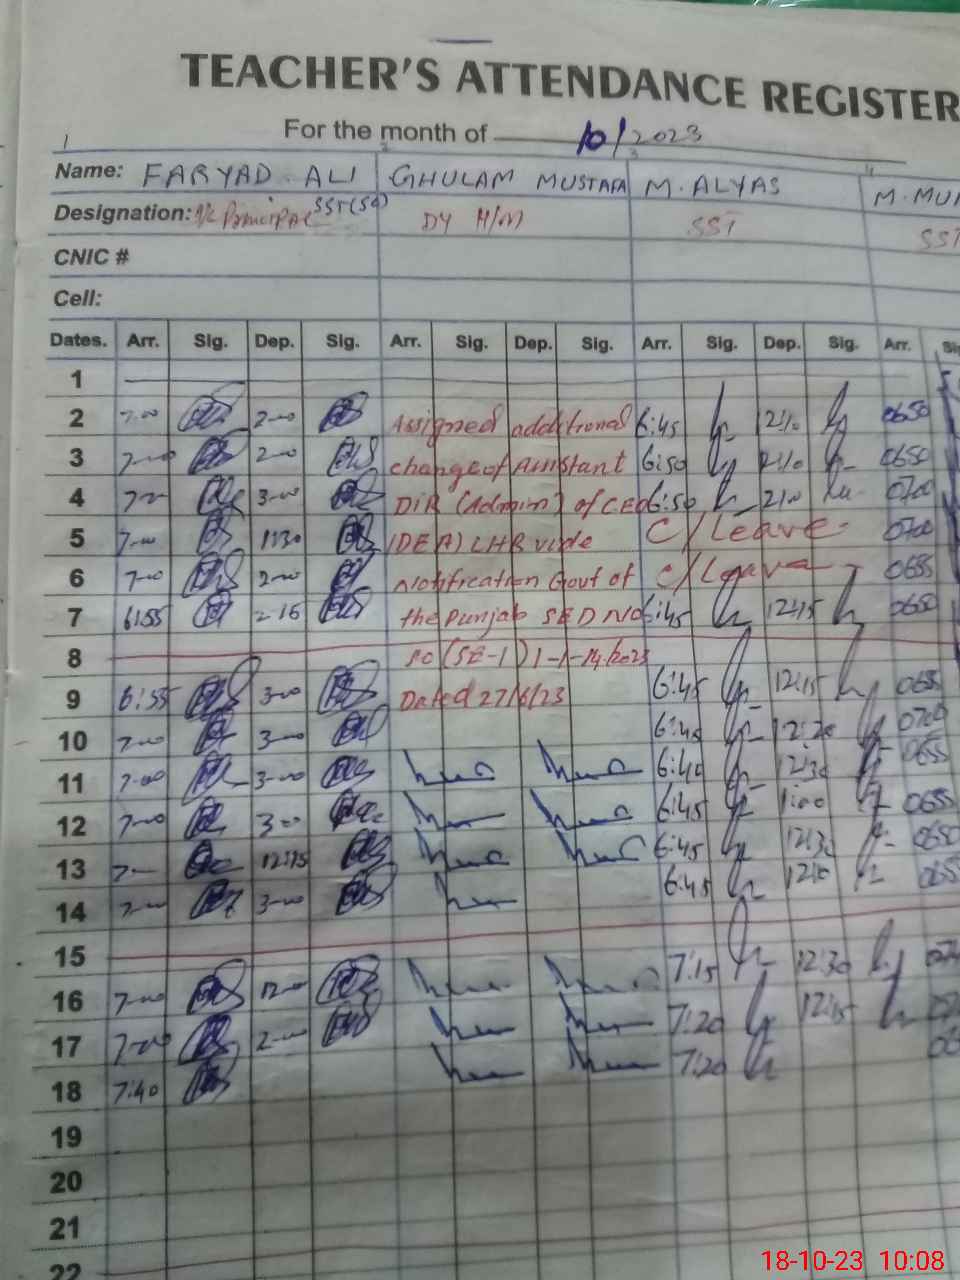 TEACHER'S ATTENDANCE REGISTER
For the month of 10/2023
Name: FARYAD ALI GHULAM MUSTAFA M. ALYAS M. MU
Designation: SST(Sc) DY H/M SST SST
CNIC #
Cell:
Dates. Arr. Sig. Dep. Sig. Arr. Sig. Dep. Sig. Arr. Sig. Dep. Sig. Arr. Sig
1
2 7-00 2-00 Assigned additional 6:45 0650
3 2-00 charge of Assistant 6:50 0650
4 3-00 DIR (Admin) of CEO 6:50 0700
5 7-00 1:30 (DEA) LHR vide C/Leave 0700
6 7-00 2-00 Notification Govt of C/Leave 0655
7 6:55 2-16 the Punjab SED NO 6:45 12:15 0650
8 SO (SE-1) 1-1-14/2023
9 6:55 3-00 Dated 27/6/23 6:45 12:15 0655
10 7-00 3-00 6:45 12:20 0700
11 7-00 3-00 6:40 12:30 0655
12 7-00 3-00 6:45 1:00 0655
13 12:15 6:45 12:30 0650
14 7-00 3-00 6:45 12:10 065
15
16 7-00 12-00 7:15 12:30
17 7-00 2-00 7:20 12:15
18 7:40 7:20
19
20
21
22
18-10-23 10:08